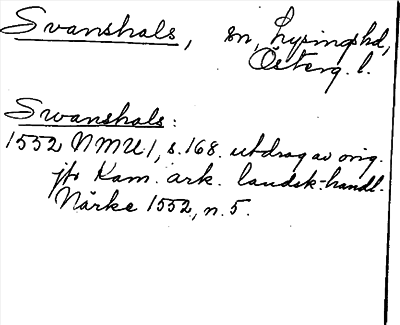 Svanshals, sn, Lysingshd,
Österg. l.
Swanshals:
1552 NMU 1, s. 168. utdrag av orig.
jfr Kam. ark. landsk.-handl.
Närke 1552, n. 5.